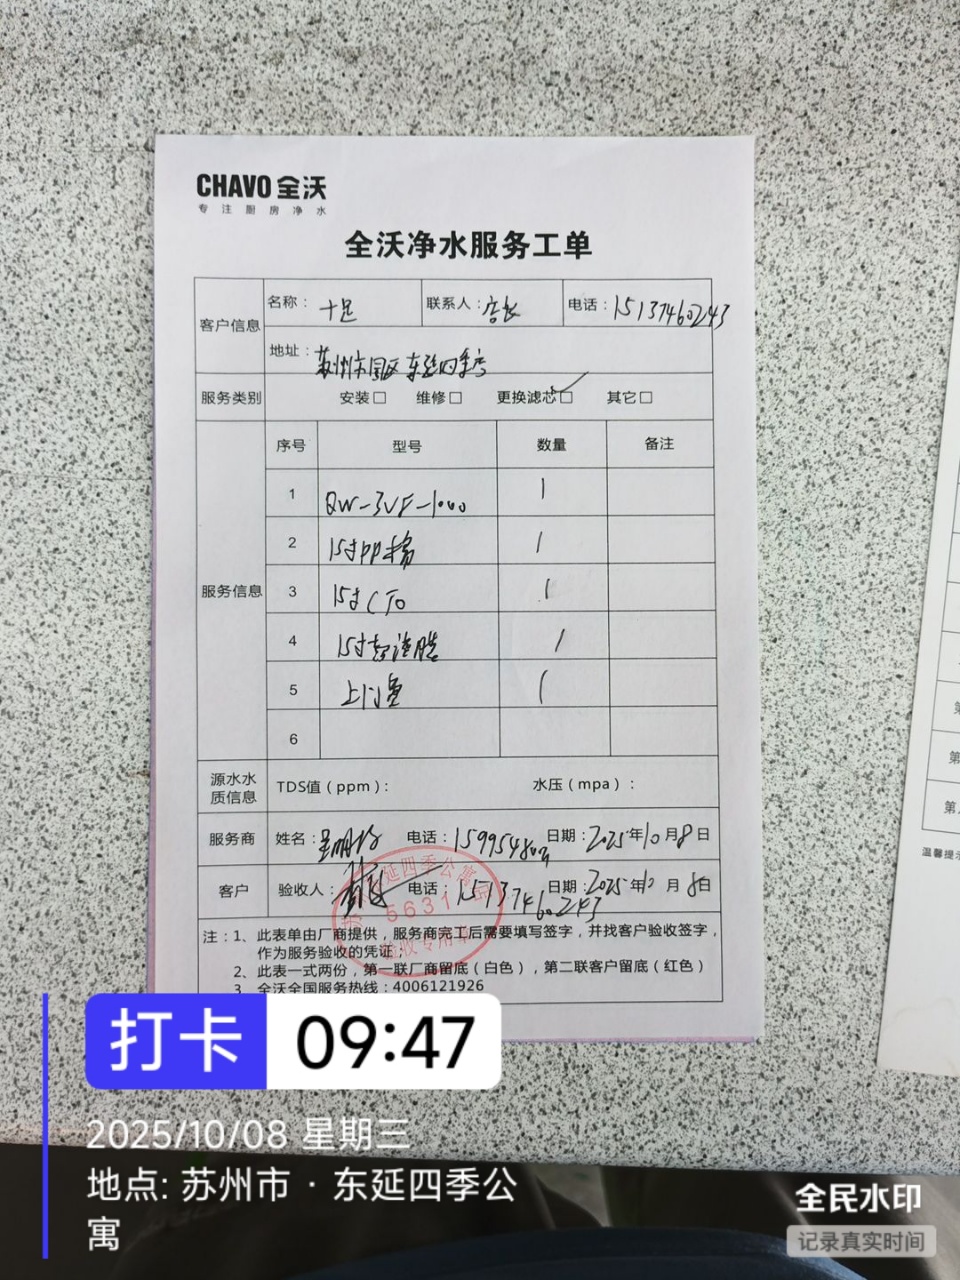 CHAVO 全沃
专注厨房净水
全沃净水服务工单
客户信息 名称：十足 联系人：店长 电话：15137460243
地址：苏州市园区东延四季店
服务类别 安装□ 维修□ 更换滤芯□✓ 其它□
服务信息 序号 型号 数量 备注
1 QW-3VF-1000 1
2 15寸PP棉 1
3 15寸CTO 1
4 15寸超滤膜 1
5 上门费 1
6
源水水质信息 TDS值（ppm）： 水压（mpa）：
服务商 姓名： 电话：159954803 日期：2025年10月8日
客户 验收人： 电话：15137460243 日期：2025年10月8日
延四季公寓店
5631
验收专用章
注：1、此表单由厂商提供，服务商完工后需要填写签字，并找客户验收签字，
作为服务验收的凭证；
2、此表一式两份，第一联厂商留底（白色），第二联客户留底（红色）
3、全沃全国服务热线：4006121926
第
第
第
温馨提示
打卡 09:47
2025/10/08 星期三
地点: 苏州市 · 东延四季公
寓
全民水印
记录真实时间